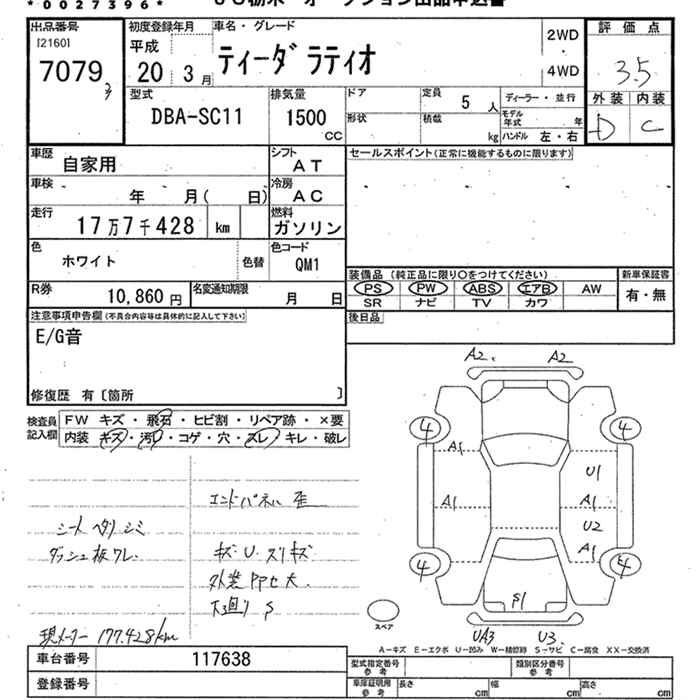 *0027396*
出品番号
[2160]
7079
初度登録年月
平成
20 3月
車名・グレード
ティーダ ラティオ
2WD
・
4WD
評価点
3.5
外装 内装
D C
型式
DBA-SC11
排気量
1500
CC
ドア
形状
定員 5 人
積載 kg
ディーラー・並行
モデル年式 年
ハンドル 左・右
車歴
自家用
シフト
AT
車検
年 月( 日)
冷房
AC
走行
17万7千428 km
燃料
ガソリン
色
ホワイト
色替
色コード
QM1
R券
10,860 円
名変通知期限
月 日
セールスポイント(正常に機能するものに限ります)
装備品 (純正品に限り○をつけてください)
PS PW ABS エアB AW
SR ナビ TV カワ
新車保証書
有・無
後日品
注意事項申告欄(不具合内容等は具体的に記入して下さい)
E/G音
修復歴 有〔箇所 〕
検査員記入欄
FW キズ・飛石・ヒビ割・リペア跡・×要
内装 キズ・汚レ・コゲ・穴・スレ・キレ・破レ
シート ヘタリ シミ
ダッシュ板ワレ.
エンドパネル 歪
キズ・U・スリキズ
下廻り S
現メーター 177.428km
A2. A2
4 4
A1
U1
A1 A1
U2
A1
4 5
S1
UA3 U3.
スペア
A-キズ E-エクボ U-凹み W-補修跡 S-サビ C-腐食 XX-交換済
車台番号 117638
登録番号
型式指定番号 参考
類別区分番号 参考
車庫証明用 参考
長さ cm 幅 cm 高さ cm